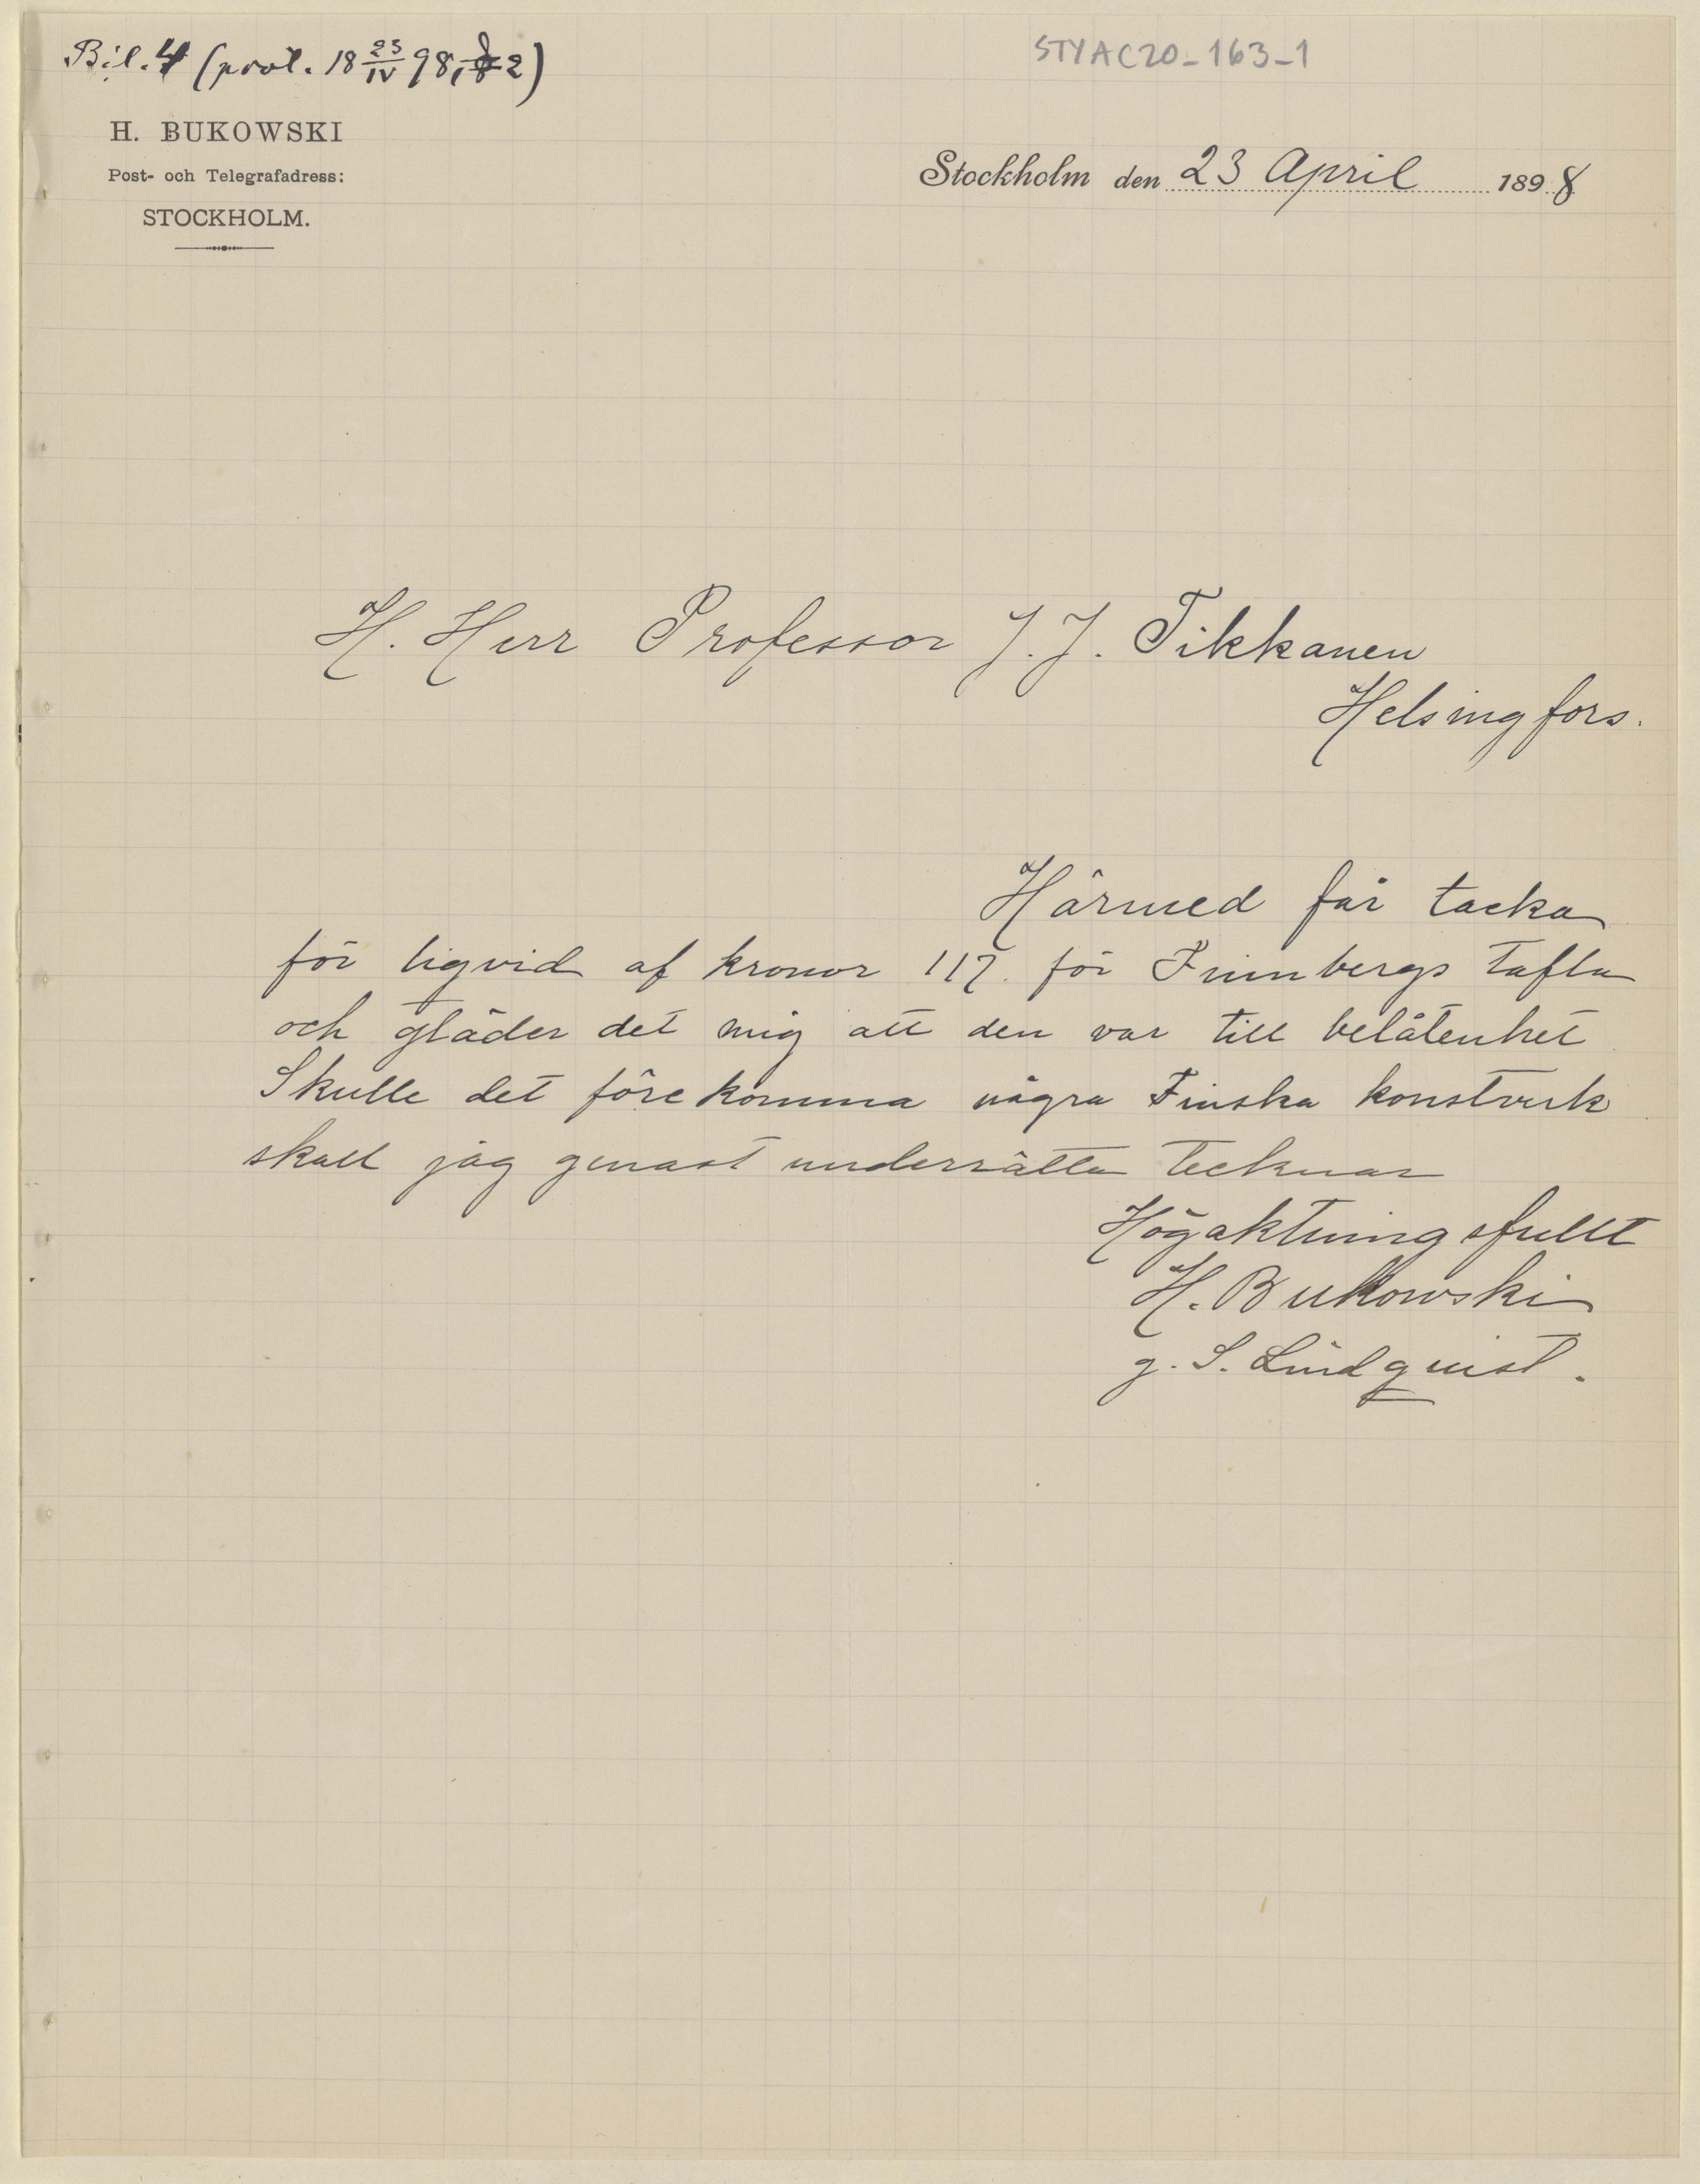 Bil. 4 (prot. 18 23/IV 98, § 2)
STYAC20-163-1
H. BUKOWSKI
Post- och Telegrafadress:
STOCKHOLM.
Stockholm den 23 April 1898
H. Herr Professor J. J. Tikkanen
Helsingfors.
Härmed får tacka
för liqvid af kronor 117. för Finnbergs tafla
och gläder det mig att den var till belåtenhet
Skulle det förekomma några Finska konstverk
skall jag genast underrätta tecknar
Högaktningsfullt
H. Bukowski
g. S. Lindquist.